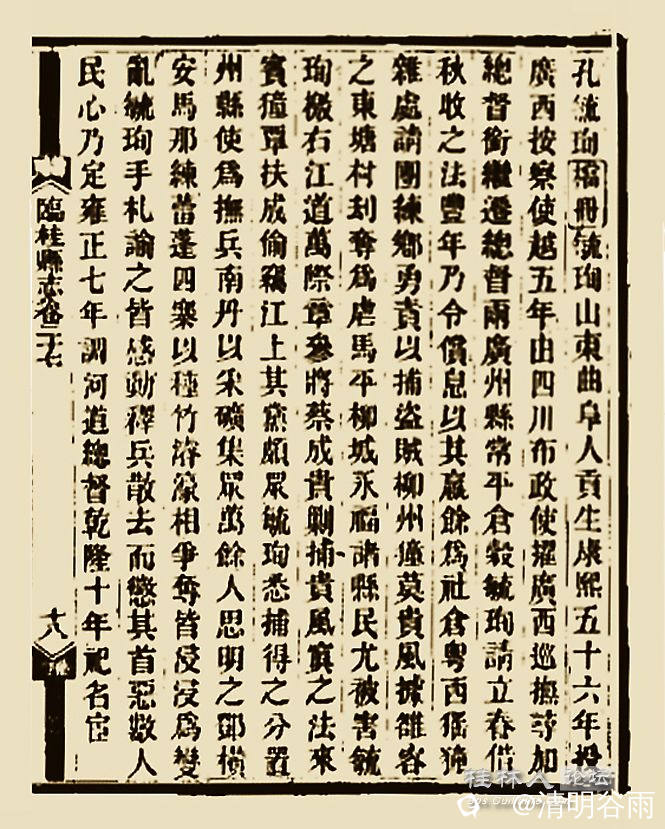 孔毓珣檔冊毓珣山東曲阜人貢生康熙五十六年授
廣西按察使越五年由四川布政使擢廣西巡撫尋加
總督銜繼遷總督兩廣州縣常平倉穀毓珣請立春借
秋收之法豐年乃令償息以其贏餘為社倉粵西猺獞
雜處請團練鄉勇責以捕盜賊柳州獞莫貴風據雒容
之東塘村刦奪為虐馬平柳城永福諸縣民尤被害毓
珣檄右江道萬際章參將蔡成貴剿捕貴風寘之法來
賓獞覃扶成偷竊江上其黨頗眾毓珣悉捕得之分置
州縣使為撫兵南丹以采礦集眾萬餘人思明之鄧橫
安馬那練蕾蓬四寨以種竹濬濠相爭奪皆侵浸為變
亂毓珣手札諭之皆感動釋兵散去而懲其首惡數人
民心乃定雍正七年調河道總督乾隆十年祀名宦
臨桂縣志卷二十七
十八
桂林人论坛
@清明谷雨